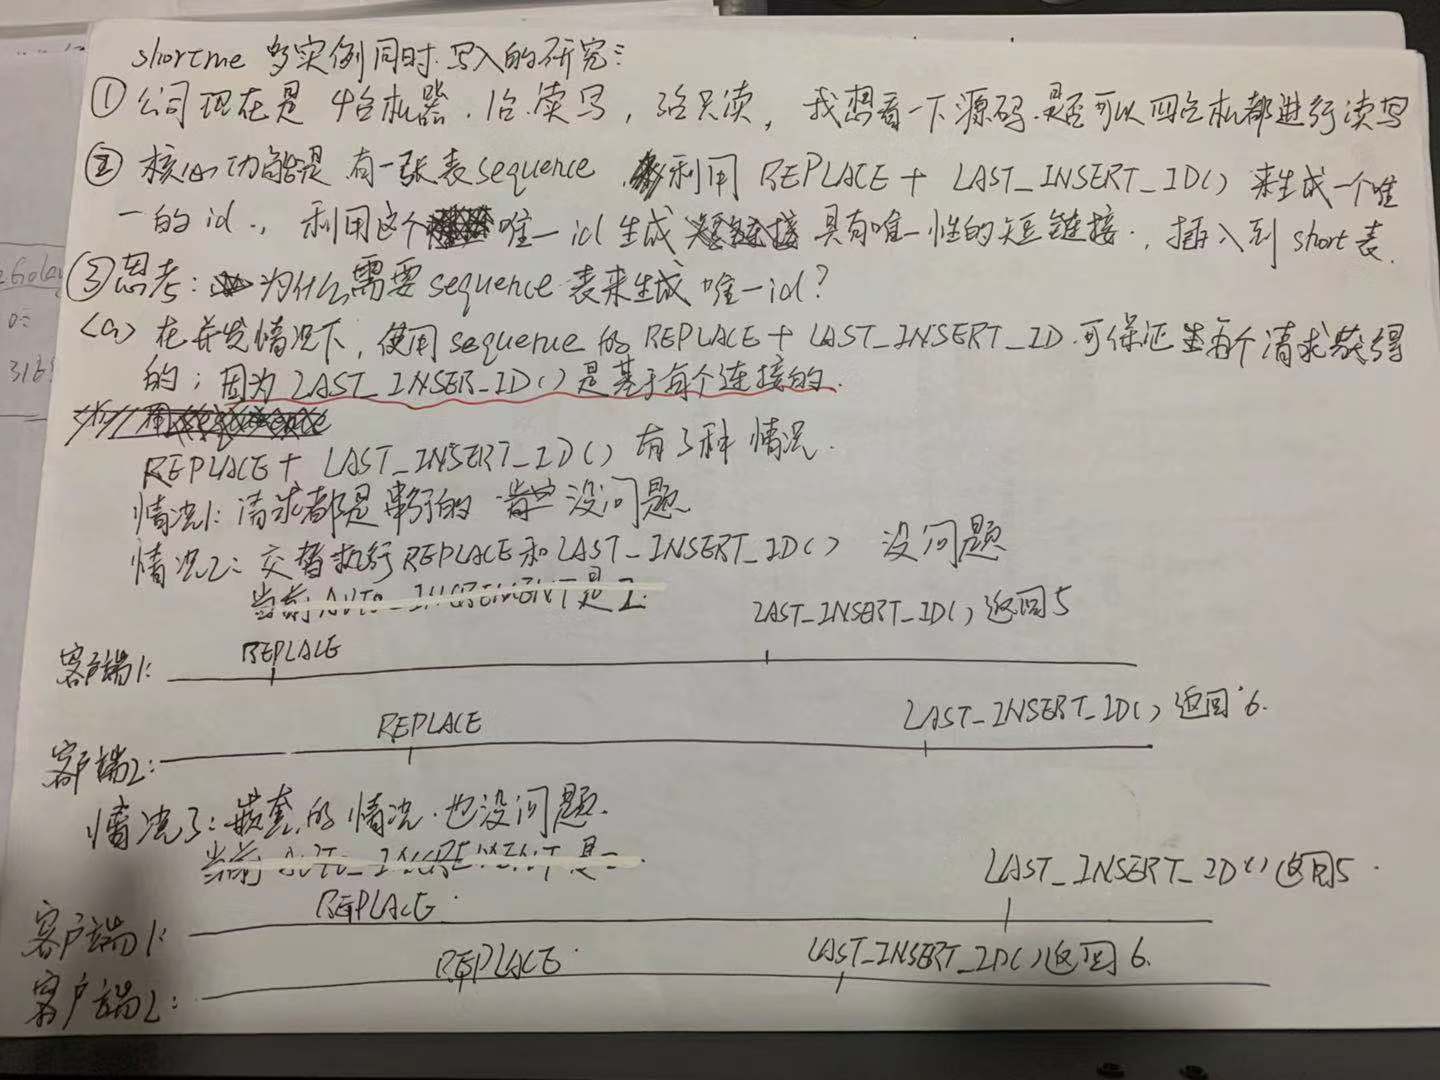 shortme 多实例同时写入的研究:
① 公司现在是 4台机器, 1台读写, 3台只读, 我想看一下源码是否可以四台机都进行读写
② 核心功能是有一张表sequence, 利用 REPLACE + LAST_INSERT_ID() 来生成一个唯
一的id., 利用这个唯一id生成具有唯一性的短链接., 插入到short表.
③ 思考: 为什么需要sequence表来生成唯一id?
<a> 在并发情况下, 使用sequence的REPLACE + LAST_INSERT_ID可保证每个请求获得
的; 因为LAST_INSER_ID()是基于每个连接的.
REPLACE + LAST_INSERT_ID() 有3种情况.
情况1: 请求都是串行的 没问题
情况2: 交替执行REPLACE和LAST_INSERT_ID() 没问题
当前AUTO_INCREMENT是
LAST_INSERT_ID()返回5
客户端1: REPLACE
REPLACE LAST_INSERT_ID()返回6.
客户端2:
情况3: 嵌套的情况.也没问题.
当前AUTO_INCREMENT是
LAST_INSERT_ID()返回5.
REPLACE
客户端1:
REPLACE LAST_INSERT_ID()返回6.
客户端2: